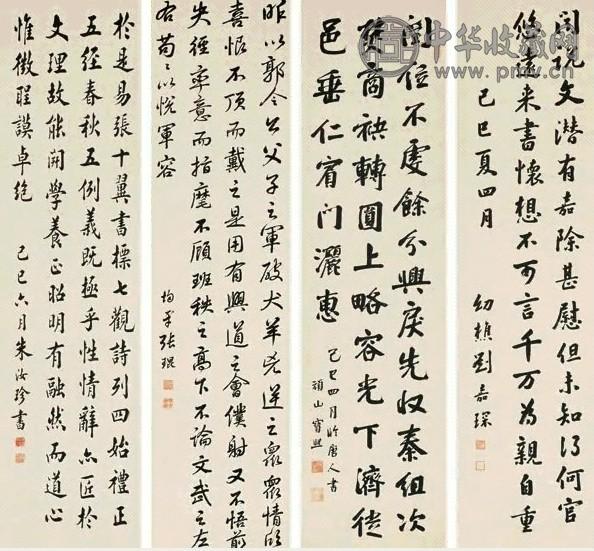 中华收藏网
文潜有嘉除甚慰但未知得何官
悠遠来書懷想不可言千万為親自重
己巳夏四月
幼樵劉嘉琛
閏位不處餘分興戾先收秦組次
商袂轉圓上略容光下濟從
邑垂仁賓門灑惠
己巳四月臨唐人書
頑山寶熙
昨以郭令公父子之軍破犬羊兇逆之眾眾情欣
喜恨不頂而戴之是用有興道之會僕射又不悟前
失徑率意而指麾不顧班秩之高下不論文武之左
右苟々以悅軍容
張琨
於是易張十翼書標七觀詩列四始禮正
五經春秋五例義既極乎性情辭亦匠於
文理故能開學養正昭明有融然而道心
惟微聖謨卓絕
己巳六月朱汝珍書